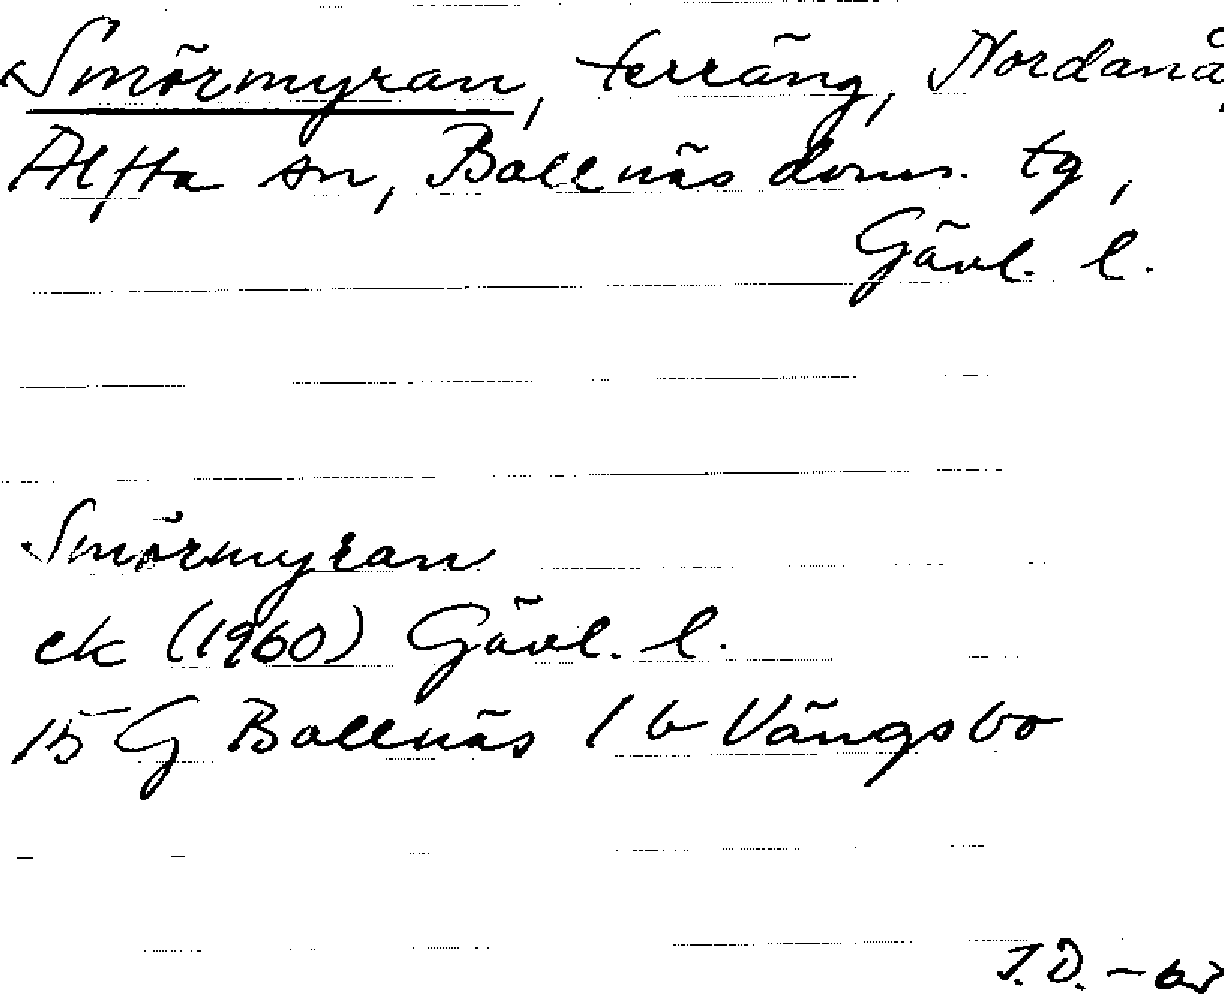 Smörmyran, terräng, Nordanå,
Alfta sn, Bollnäs doms. tg,
Gävl. l.
Smörmyran
ek (1960) Gävl. l.
15 G Bollnäs 1 b Vängsbo
J.Ö. -63